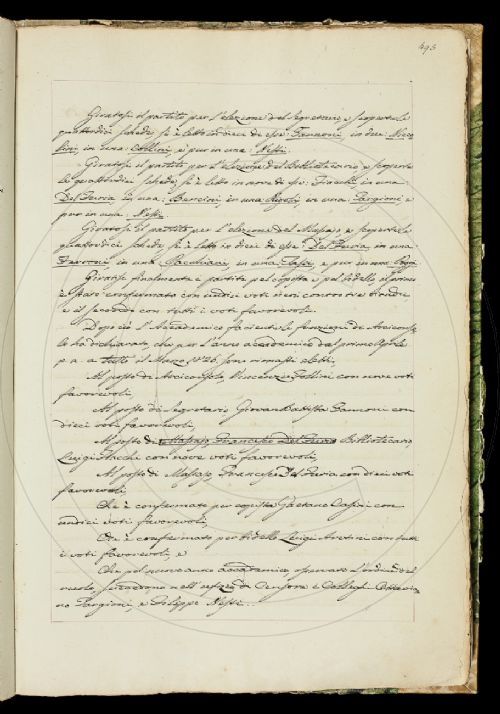 495
Giratosi il partito per l'elezione del Segretario, e scopertele
quattordici schede, si è letto in dieci di esse: Zannoni, in due: Nicco
lini, in una: Collini e pur in una: Nesti.
Giratosi il partito per l'elezione del Bibliotecario e scoperte
le quattordici schede, si è letto in nove di esse: Fiacchi, in una:
Del Furia, in una: Bencini, in una Rigoli, in una: Targioni e
pur in una: Nesti
Giratosi il partito per l'elezione del Massajo, e scopertele
quattordici schede, si è letto in dieci di esse: Del Furia, in una
in una: Sacchiani, in una e pur in una
Giratosi finalmente il partito pel copista e pel bidello, il primo
è stato confermato con undici voti neri contro tre bianchi
e il secondo con tutti i voti favorevoli.
Dopo ciò l'Accademico facientele funzioni di Arciconso
lo ha dichiarato, che per l'anno accademico dal primo Aprile
p. a. a tutto il Marzo 1826. sono rimasti eletti,
Al posto di Arciconsolo, Vincenzio Follini con nove voti
favorevoli,
Al posto di Segretario Giovan Battista Zannoni con
dieci voti favorevoli,
Al posto di Massajo, Francesco Del Furia Bibliotecario,
Luigi Fiacchi con nove voti favorevoli,
Al posto di Massajo, Francesco Del Furia con dieci voti
favorevoli,
Che è confermato per copista Gaetano Casini con
undici voti favorevoli,
Che è confermato per bidello Luigi Aretini con tutti
i voti favorevoli, e
Che pel nuovo anno accademico, osservato l'ordine del
ruolo, succedono nell'ufizio di Censore i Colleghi Ottavia
no Targioni, e Filippo Nesti.